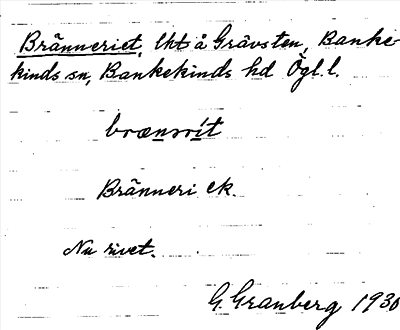 Bränneriet, lht å Grävsten, Banke-
kinds sn, Bankekinds hd Ögl. l.
brænrit
Bränneri ek.
Nu rivet.
G. Granberg 1930